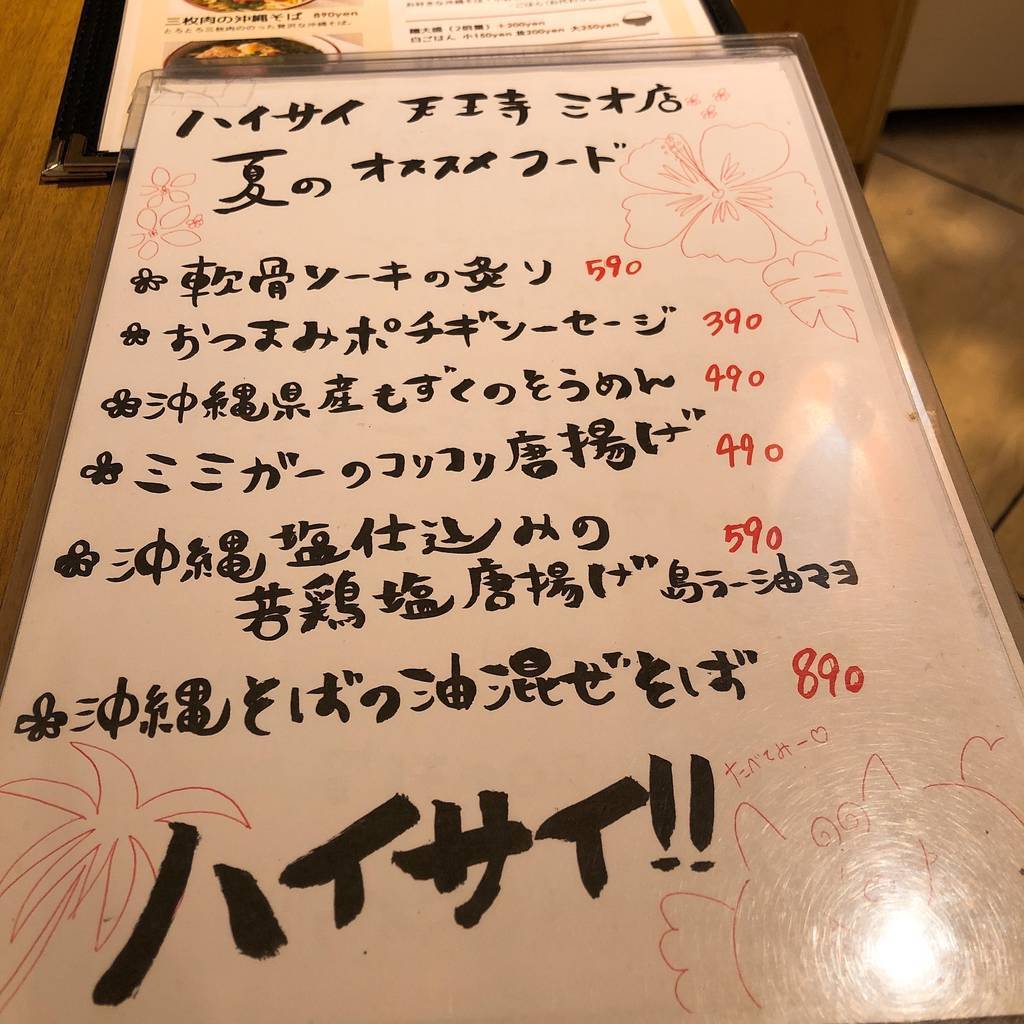 三枚肉の沖縄そば 890yen
とろとろ三枚肉ののった贅沢な沖縄そば。
麺大盛(2倍量)+300yen
白ごはん 小150yen 並200yen 大250yen
ハイサイ 天王寺 ミオ店
夏の オススメフード
軟骨ソーキの炙り 590
おつまみポチギソーセージ 390
沖縄県産もずくのそうめん 490
ミミガーのコリコリ唐揚げ 490
沖縄塩仕込みの 590
若鶏塩唐揚げ 島ラー油マヨ
沖縄そばの油混ぜそば 890
たべてみー♡
ハイサイ!!